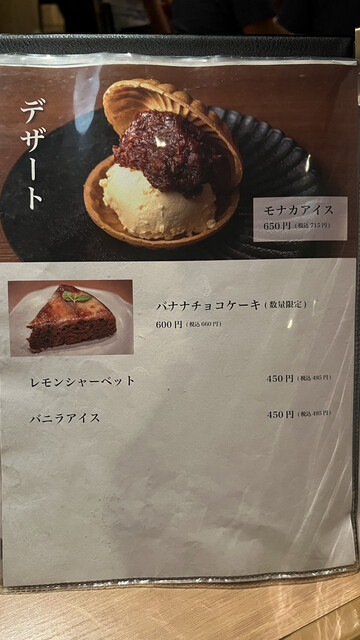 デザート
モナカアイス
650円(税込715円)
バナナチョコケーキ(数量限定)
600円(税込660円)
レモンシャーベット 450円(税込495円)
バニラアイス 450円(税込495円)